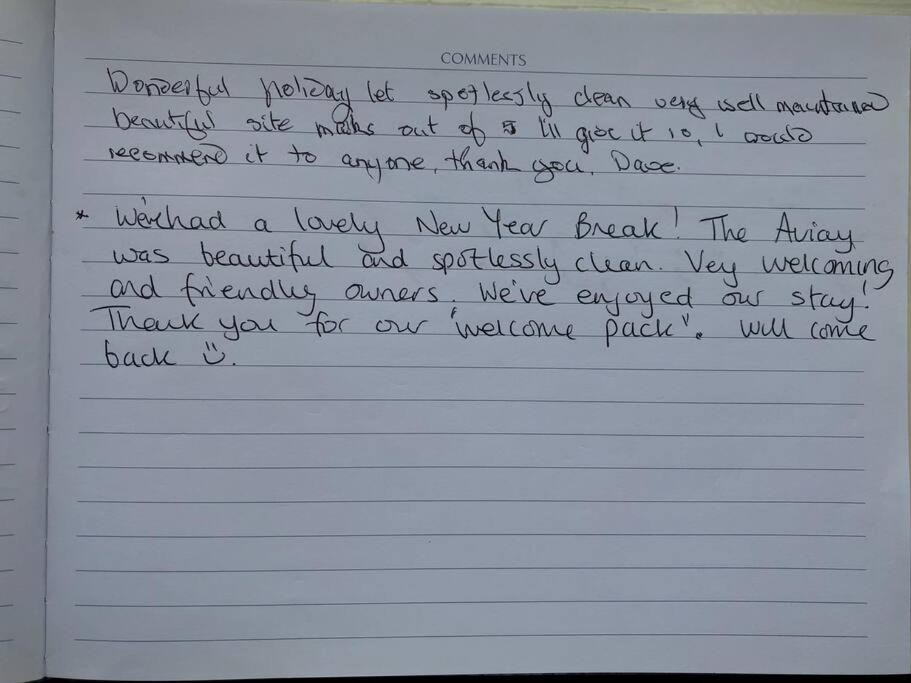 COMMENTS
Wonderful holiday let spotlessly clean very well maintained
beautiful site marks out of 5 I'll give it 10, I would
recommend it to anyone, thank you, Dave.
* We've had a lovely New Year Break! The Aviay
was beautiful and spotlessly clean. Vey welcoming
and friendly owners. We've enjoyed our stay!
Thank you for our "welcome pack". Will come
back ☺.